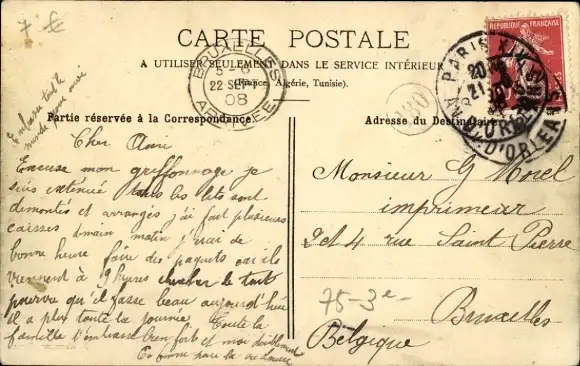 7.-€
CARTE POSTALE
A UTILISER SEULEMENT DANS LE SERVICE INTÉRIEUR
(France, Algérie, Tunisie).
BRUXELLES
5-6
22 SEPT
08
ARRIVÉE
REPUBLIQUE FRANÇAISE
PARIS
Partie réservée à la Correspondance.
Adresse du Destinataire.
Embrasse tout le
monde pour moi
Cher Ami
Excuse mon griffonnage je
suis extenuée tous les lits sont
demontés et arrangés j'ai fait plusieurs
caisses demain matin j'irai de
bonne heure faire des paquets car ils
viennent à 9 heures chercher le tout
pourvu qu'il fasse beau aujourd'hui
il a plu toute la journée. Toute la
famille t'embrasse bien fort et moi doublement
Monsieur G Morel
imprimeur
2 et 4 rue Saint Pierre
Bruxelles
Belgique
75-3e-